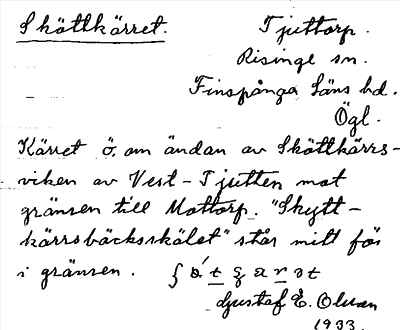 Sköttkärret.
Tjuttorp.
Risinge sn.
Finspånga läns hd.
Ögl.
Kärret ö. om ändan av Sköttkärrs-
viken av Vest-Tjutten mot
gränsen till Mottorp. "Skytt-
kärrsbäcksskälet" står mitt för
i gränsen.
Gustaf E. Olsson
1933.